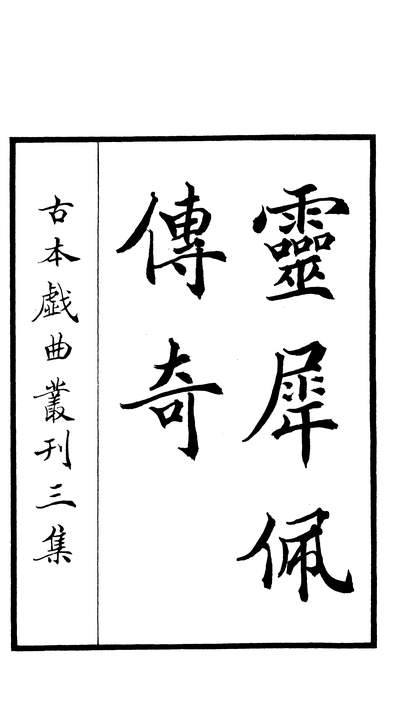 靈犀佩
傳奇
古本戯曲叢刊三集